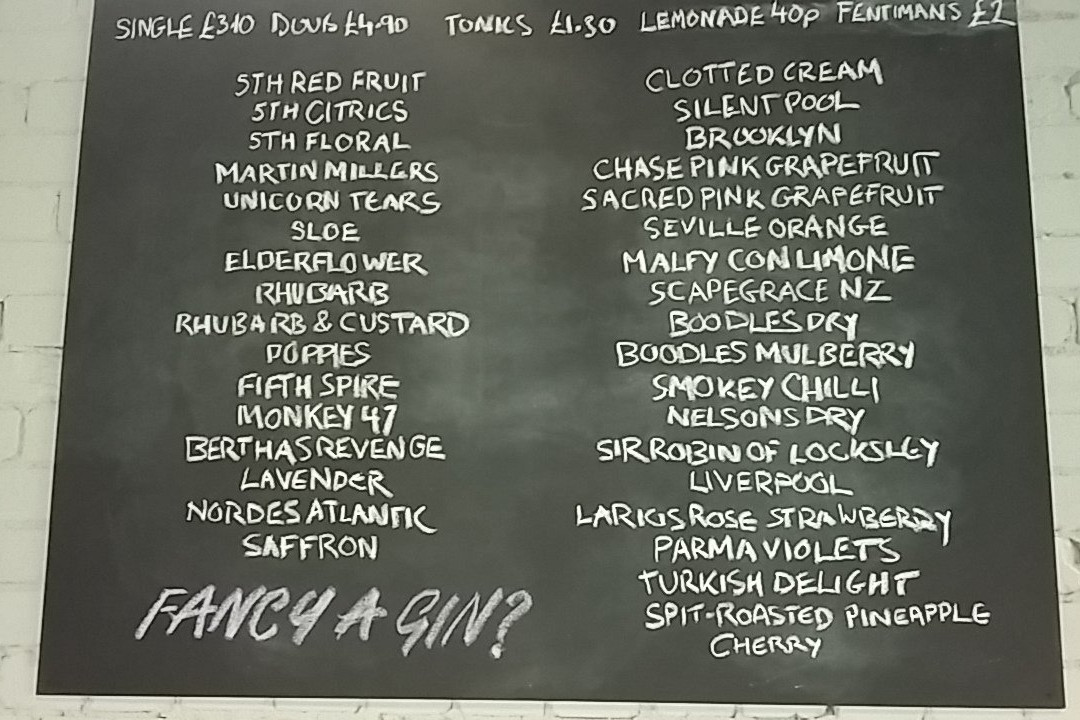 SINGLE £3.10 DOUB £4.90 TONICS £1.30 LEMONADE 40p FENTIMANS £2
5TH RED FRUIT
5TH CITRICS
5TH FLORAL
MARTIN MILLERS
UNICORN TEARS
SLOE
ELDERFLOWER
RHUBARB
RHUBARB & CUSTARD
POPPIES
FIFTH SPIRE
MONKEY 47
BERTHAS REVENGE
LAVENDER
NORDES ATLANTIC
SAFFRON
FANCY A GIN?
CLOTTED CREAM
SILENT POOL
BROOKLYN
CHASE PINK GRAPEFRUIT
SACRED PINK GRAPEFRUIT
SEVILLE ORANGE
MALFY CON LIMONE
SCAPEGRACE NZ
BOODLES DRY
BOODLES MULBERRY
SMOKEY CHILLI
NELSONS DRY
SIR ROBIN OF LOCKSLEY
LIVERPOOL
LARIOS ROSE STRAWBERRY
PARMA VIOLETS
TURKISH DELIGHT
SPIT-ROASTED PINEAPPLE
CHERRY